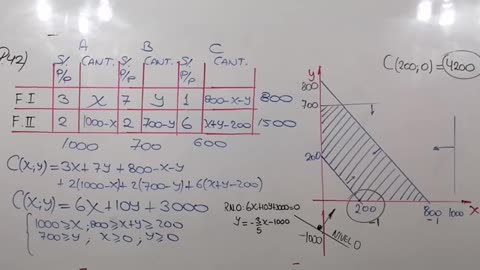 P42)
A B C
S/. P/p CANT. S/. P/p CANT. S/. P/p CANT.
F.I 3 X 7 Y 1 800-X-Y 800
F.II 2 1000-X 2 700-Y 6 X+Y-200 1500
1000 700 600
C(X;Y)=3X+7Y+800-X-Y
+2(1000-X)+2(700-Y)+6(X+Y-200)
C(X;Y)=6X+10Y+3000
1000≥X; 800≥X+Y≥200
700≥Y; X≥0; Y≥0
C(200;0)=4200
Y
800
700
200
200 800 1000 X
-1 -1
R.N.O: 6X+10Y+3000=0
Y=-3/5X-1000
-1000
NIVEL 0